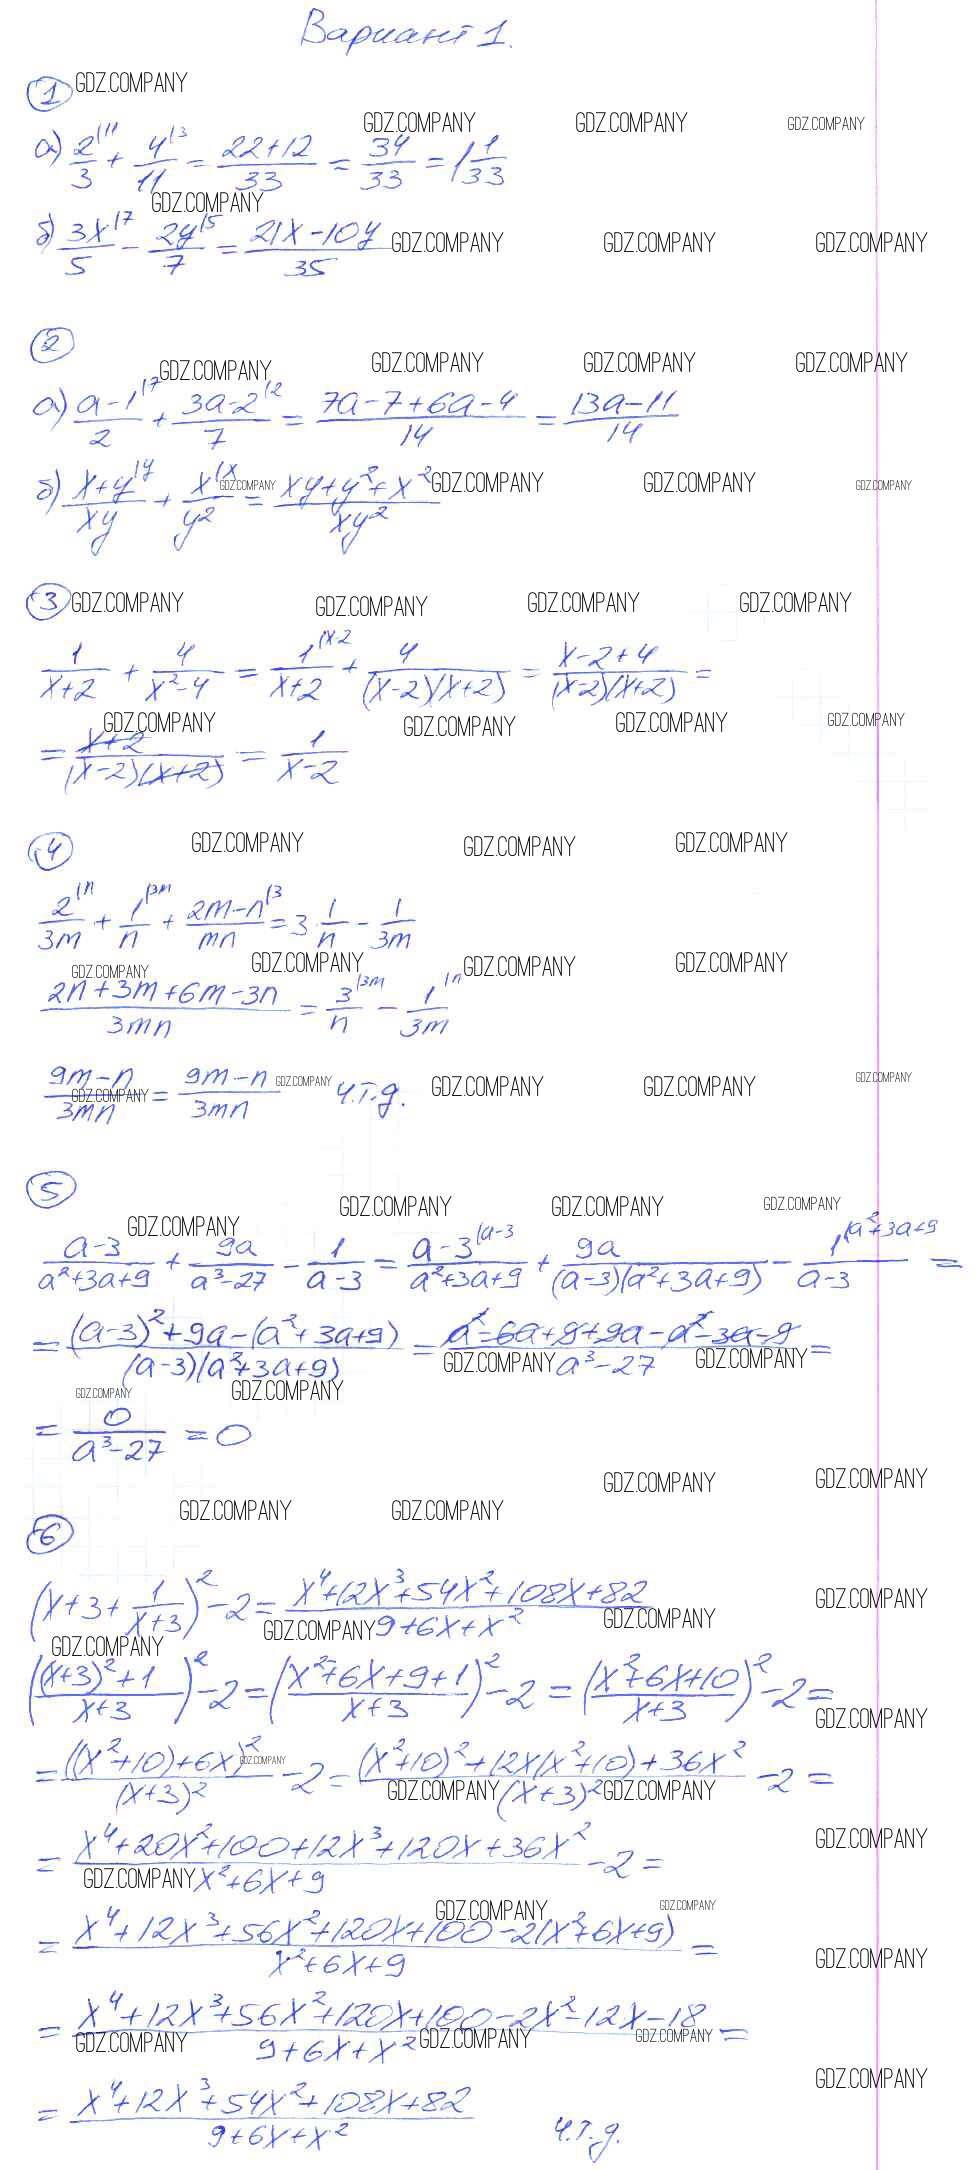 Вариант 1.
① GDZ.COMPANY
GDZ.COMPANY GDZ.COMPANY GDZ.COMPANY
а) 2^{|11}/3 + 4^{|3}/11 = (22+12)/33 = 34/33 = 1 1/33
GDZ.COMPANY
б) 3x^{|7}/5 - 2y^{|5}/7 = (21x-10y)/35 GDZ.COMPANY GDZ.COMPANY GDZ.COMPANY
②
GDZ.COMPANY GDZ.COMPANY GDZ.COMPANY GDZ.COMPANY
а) (a-1)^{|7}/2 + (3a-2)^{|2}/7 = (7a-7+6a-4)/14 = (13a-11)/14
б) (x+y)^{|y}/xy + x^{|x}/y² = (xy+y²+x²)/xy² GDZ.COMPANY GDZ.COMPANY GDZ.COMPANY GDZ.COMPANY
③ GDZ.COMPANY GDZ.COMPANY GDZ.COMPANY GDZ.COMPANY
1/(x+2) + 4/(x²-4) = 1^{|x-2}/(x+2) + 4/((x-2)(x+2)) = (x-2+4)/((x-2)(x+2)) =
GDZ.COMPANY GDZ.COMPANY GDZ.COMPANY GDZ.COMPANY
= (x+2)/((x-2)(x+2)) = 1/(x-2)
④ GDZ.COMPANY GDZ.COMPANY GDZ.COMPANY
2^{|n}/3m + 1^{|3m}/n + (2m-n)^{|3}/mn = 3·1/n - 1/3m
GDZ.COMPANY GDZ.COMPANY GDZ.COMPANY GDZ.COMPANY
(2n+3m+6m-3n)/3mn = 3^{|3m}/n - 1^{|n}/3m
(9m-n)/3mn = (9m-n)/3mn ч.т.д. GDZ.COMPANY GDZ.COMPANY GDZ.COMPANY GDZ.COMPANY GDZ.COMPANY
⑤
GDZ.COMPANY GDZ.COMPANY GDZ.COMPANY GDZ.COMPANY
(a-3)/(a²+3a+9) + 9a/(a³-27) - 1/(a-3) = (a-3)^{|a-3}/(a²+3a+9) + 9a/((a-3)(a²+3a+9)) - 1^{|a²+3a+9}/(a-3) =
= ((a-3)²+9a-(a²+3a+9))/((a-3)(a²+3a+9)) = (a²-6a+9+9a-a²-3a-9)/(a³-27) =
GDZ.COMPANY GDZ.COMPANY
GDZ.COMPANY GDZ.COMPANY
= 0/(a³-27) = 0
GDZ.COMPANY GDZ.COMPANY
GDZ.COMPANY GDZ.COMPANY
⑥
(x+3+1/(x+3))²-2 = (x⁴+12x³+54x²+108x+82)/(9+6x+x²) GDZ.COMPANY
GDZ.COMPANY GDZ.COMPANY GDZ.COMPANY
(((x+3)²+1)/(x+3))²-2 = ((x²+6x+9+1)/(x+3))²-2 = ((x²+6x+10)/(x+3))²-2 =
GDZ.COMPANY
= ((x²+10)+6x)²/(x+3)² -2 = ((x²+10)²+12x(x²+10)+36x²)/(x+3)² -2 =
GDZ.COMPANY GDZ.COMPANY GDZ.COMPANY
= (x⁴+20x²+100+12x³+120x+36x²)/(x²+6x+9) -2 = GDZ.COMPANY
GDZ.COMPANY
GDZ.COMPANY GDZ.COMPANY
= (x⁴+12x³+56x²+120x+100-2(x²+6x+9))/(x²+6x+9) = GDZ.COMPANY
= (x⁴+12x³+56x²+120x+100-2x²-12x-18)/(9+6x+x²) =
GDZ.COMPANY GDZ.COMPANY GDZ.COMPANY
GDZ.COMPANY
= (x⁴+12x³+54x²+108x+82)/(9+6x+x²) ч.т.д.